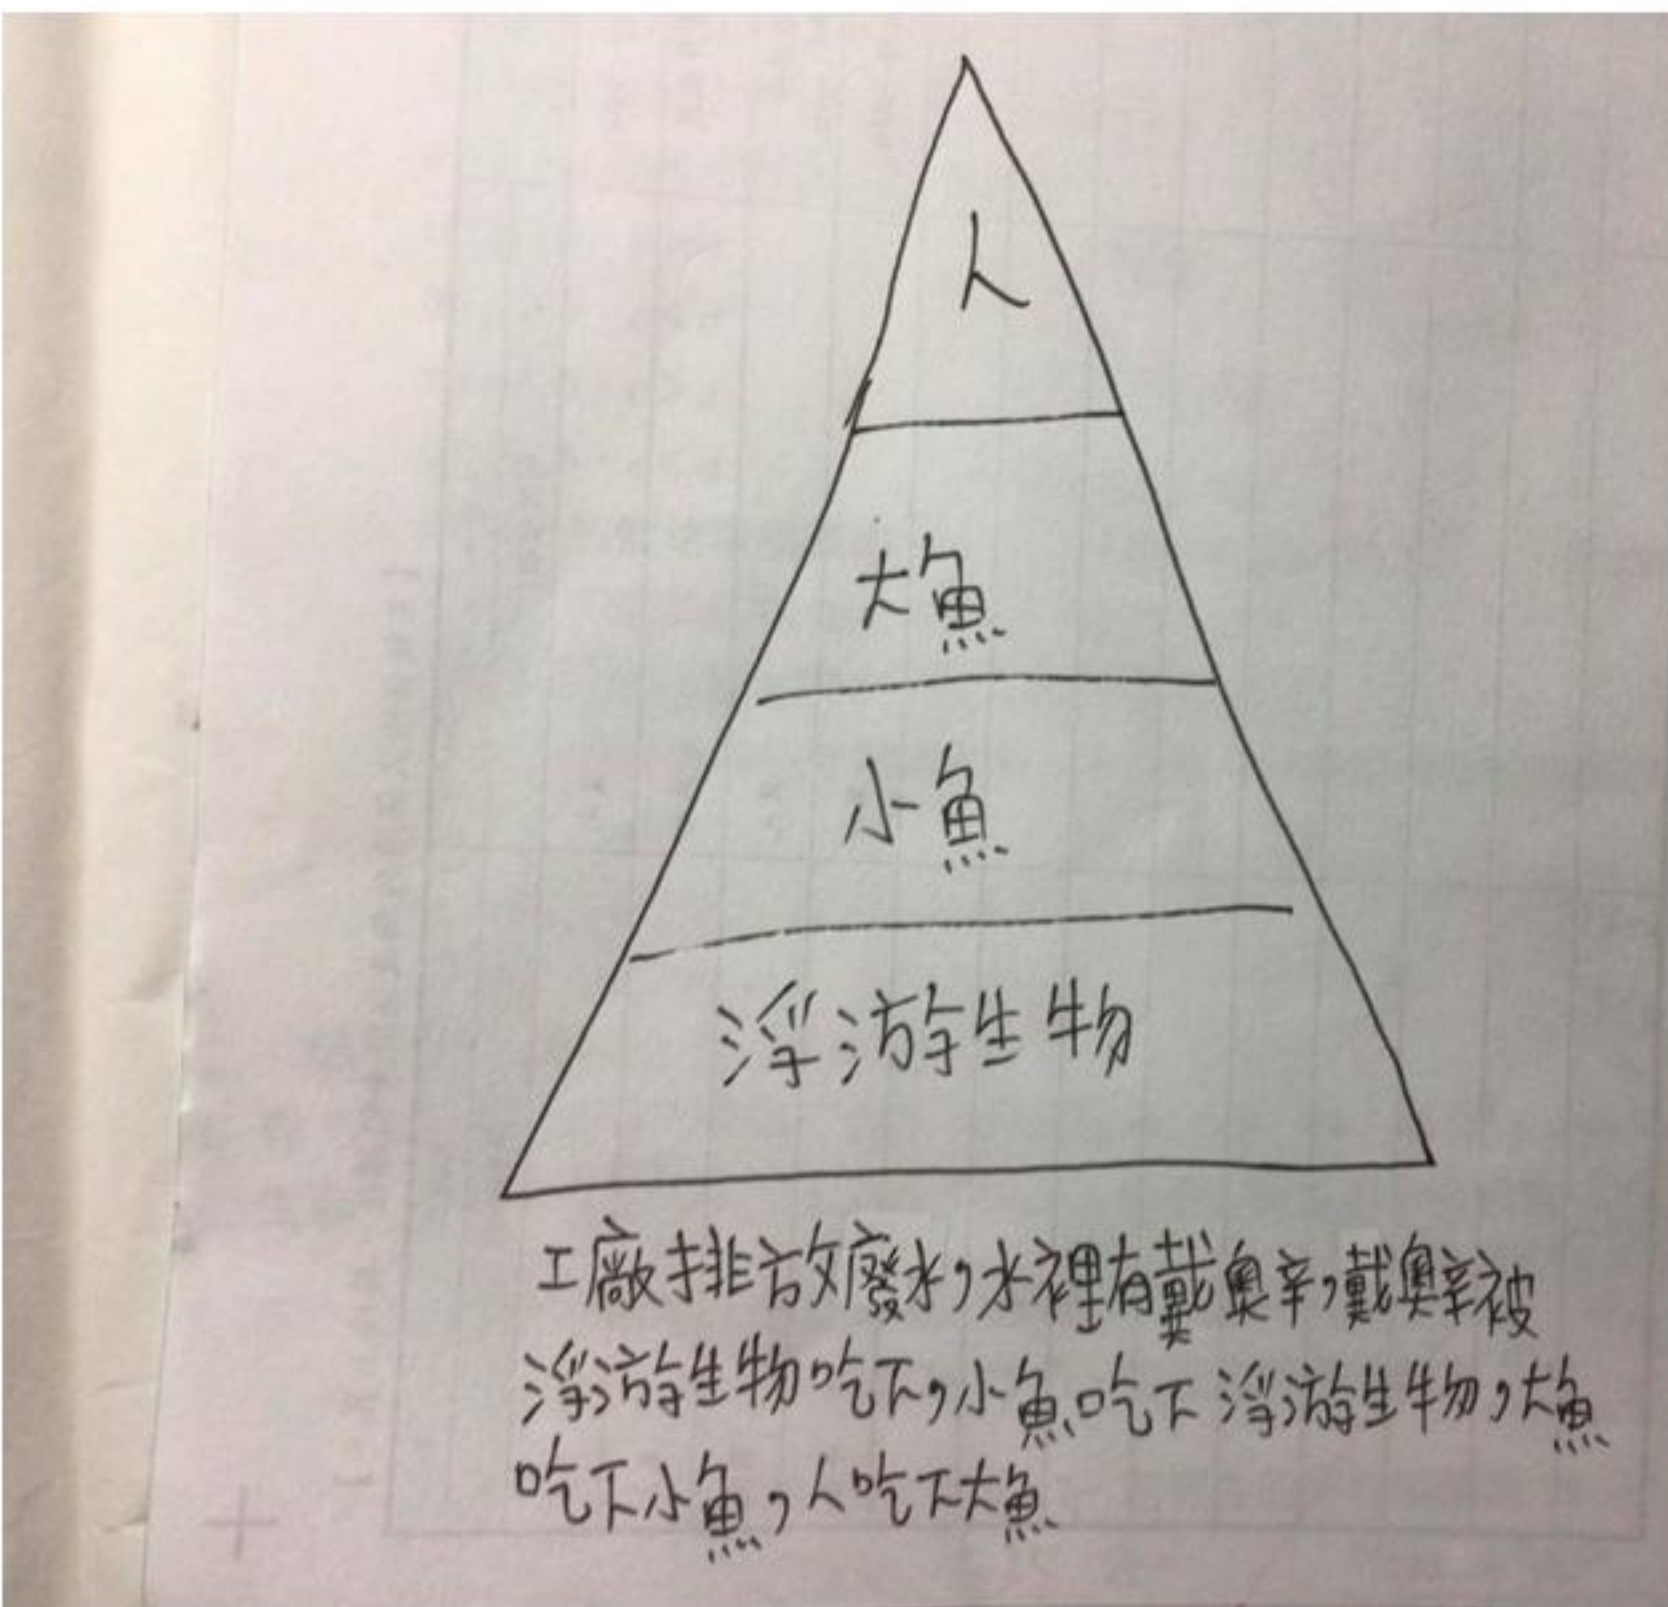 人
大魚
小魚
浮游生物
工廠排放廢水,水裡有戴奧辛,戴奧辛被
浮游生物吃下,小魚吃下浮游生物,大魚
吃下小魚,人吃下大魚